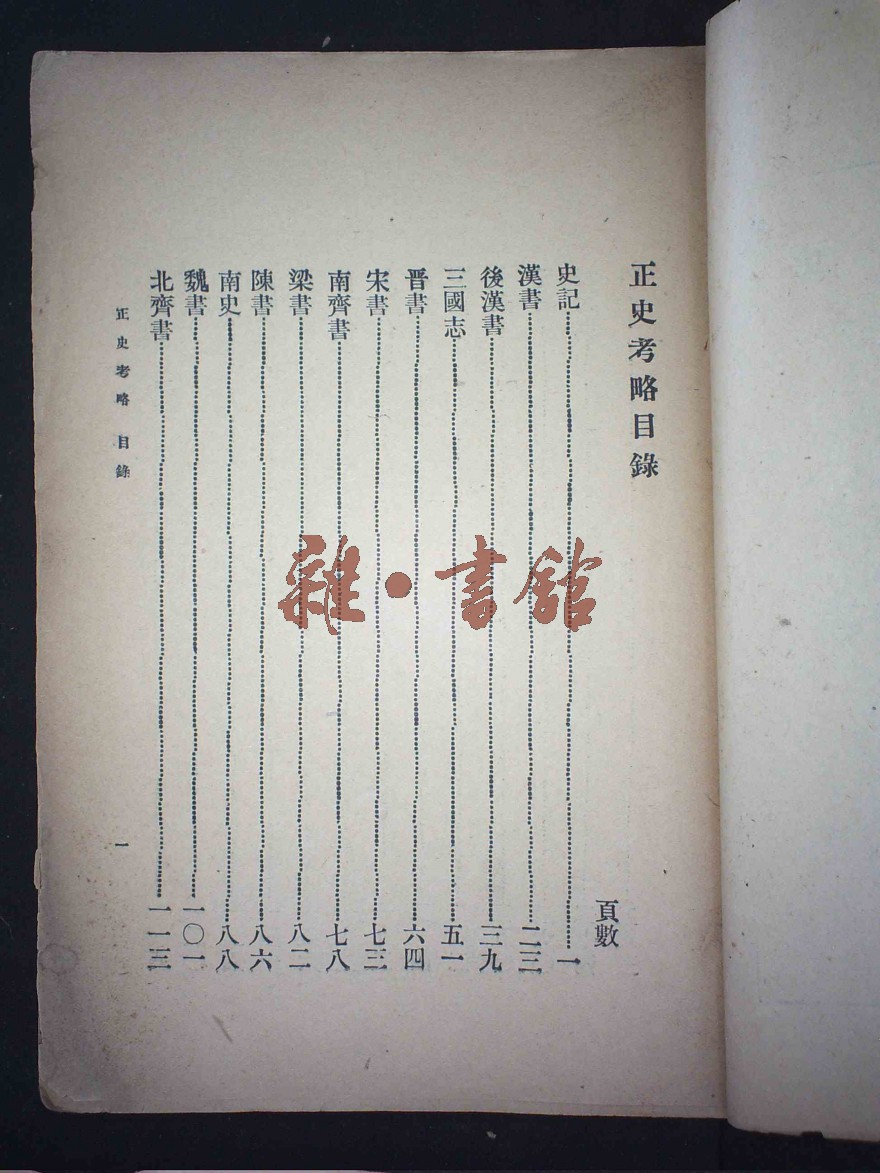 正史考略目錄
頁數
史記 一
漢書 二三
後漢書 三九
三國志 五一
晋書 六四
宋書 七三
南齊書 七八
梁書 八二
陳書 八六
南史 八八
魏書 一〇一
北齊書 一一三
正史考略 目錄 一
雜·書館